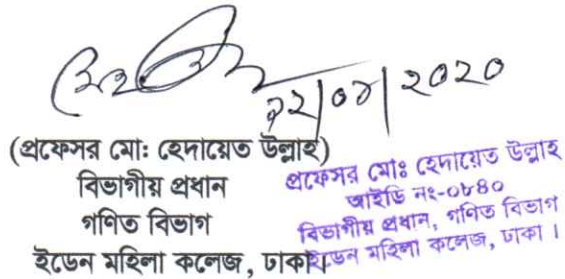 ২২|০৯|২০২০
(প্রফেসর মো: হেদায়েত উল্লাহ)
বিভাগীয় প্রধান
গণিত বিভাগ
ইডেন মহিলা কলেজ, ঢাকা।
প্রফেসর মোঃ হেদায়েত উল্লাহ
আইডি নং-০৮৪০
বিভাগীয় প্রধান, গণিত বিভাগ
ইডেন মহিলা কলেজ, ঢাকা ।